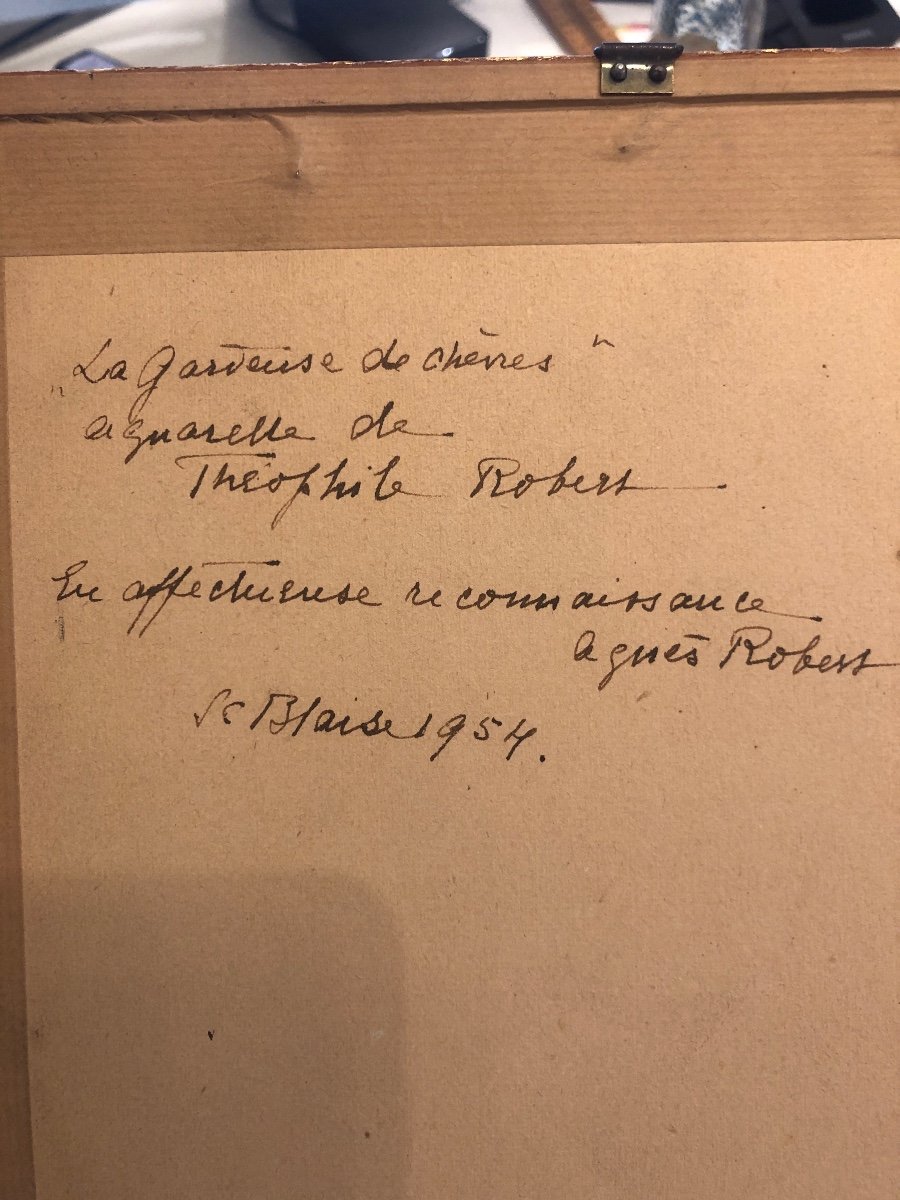 „La Gardeuse de chèvres"
aquarelle de
Théophile Robert.
En affectueuse reconnaissance
Agnès Robert
St Blaise 1954.